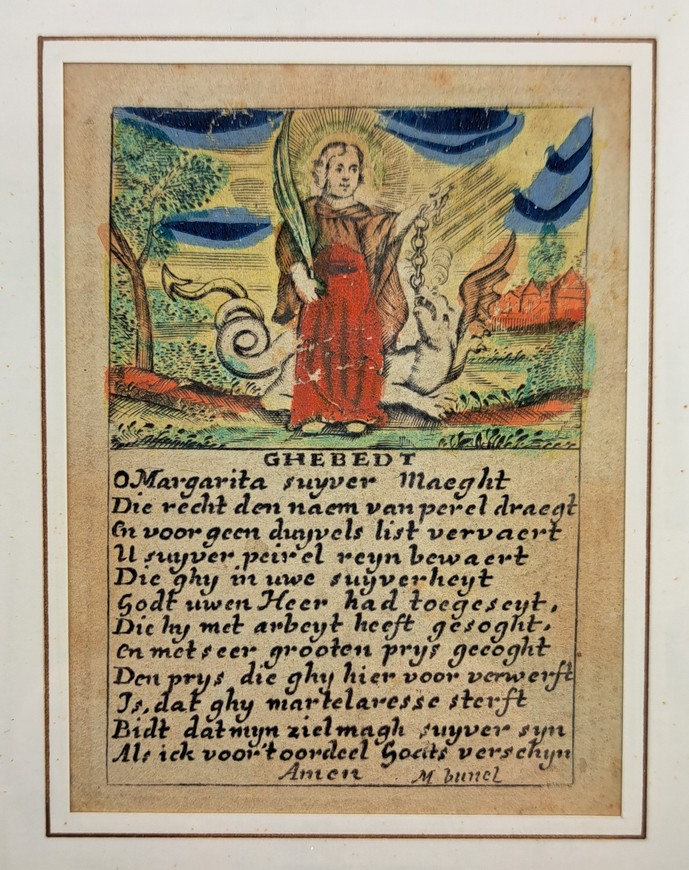 GHEBEDT
O Margarita suyver Maeght
Die recht den naem van perel draegt
En voor geen duyvels list vervaert
U suyver peirel reyn bewaert
Die ghy in uwe suyverheyt
Godt uwen Heer had toegeseyt,
Die hy met arbeyt heeft gesoght,
en met seer grooten prys gecoght
Den prys die ghy hier voor verwerft
Is, dat ghy martelaresse sterft
Bidt dat myn ziel magh suyver syn
Als ick voor't oordeel Godts verschyn
Amen M bunel